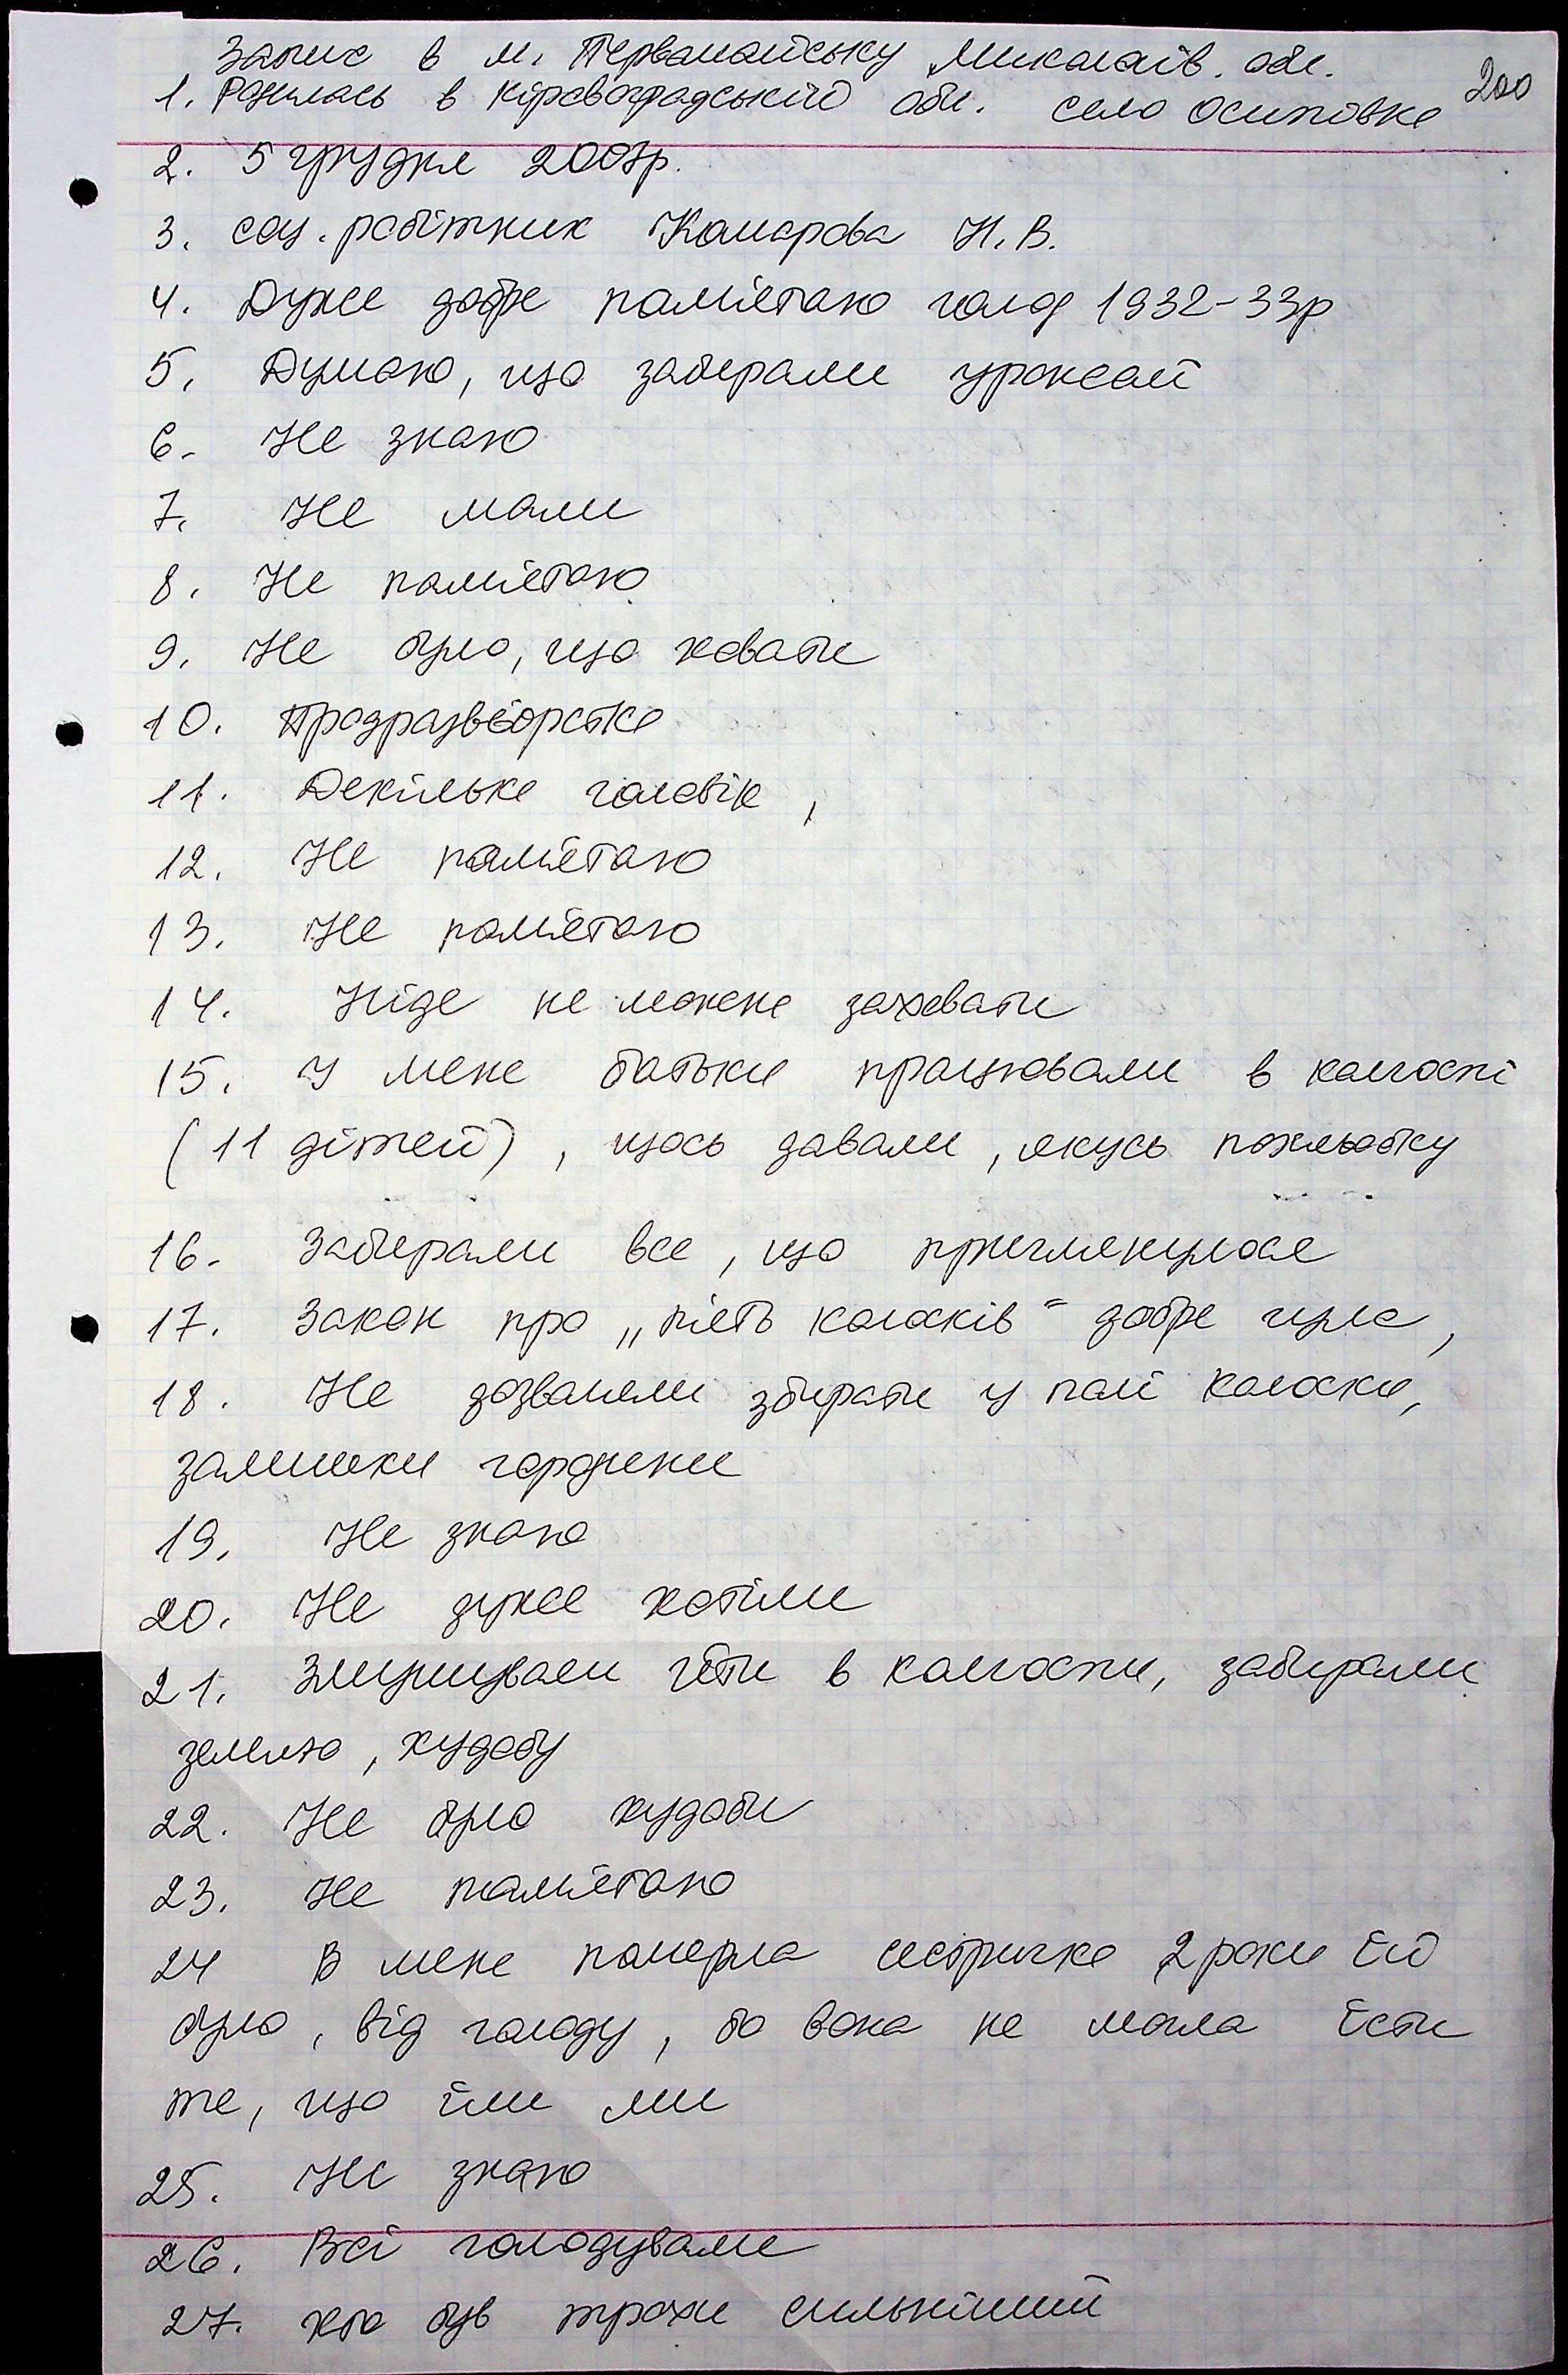 Запис в м. Первомайську Миколаїв. обл.
200
1. Родилась в Кіровоградській обл. село Осиповка
2. 5 грудня 2007р.
3. соц. робітник Комарова Н.В.
4. Дуже добре памʼятаю голод 1932-33р
5. Думаю, що забирали урожай
6. Не знаю
7. Не мали
8. Не памʼятаю
9. Не було, що ховати
10. Продразвёрстка
11. Декілька чоловік,
12. Не памʼятаю
13. Не памʼятаю
14. Ніде не можна заховати
15. У мене батьки працювали в колгоспі
(11 дітей), щось давали, якусь похльобку
16. Забирали все, що приглянулося
17. Закон про „пʼять колосків" добре чула,
18. Не дозволяли збирати у полі колоски,
залишки городини
19. Не знаю
20. Не дуже хотіли
21. Змушували йти в колгоспи, забирали
землю, худобу
22. Не було худоби
23. Не памʼятаю
24 В мене померла сестричка 2 роки їй
було, від голоду, бо вона не могла їсти
те, що їли ми
25. Не знаю
26. Всі голодували
27. хто був трохи сильніший